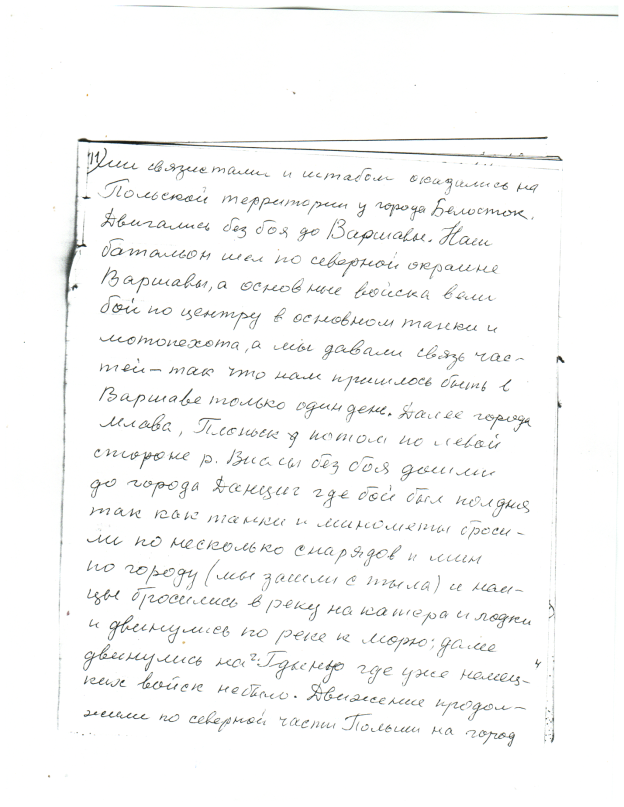 11) ими связистами и штабом оказились на
Польской территории у города Белосток.
Двигались без боя до Варшавы. Наш
батальон шел по северной окраине
Варшавы, а основные войска вели
бой по центру в основном танки и
мотопехота, а мы давали связь час-
тей – так что нам пришлось быть в
Варшаве только один день. Далее города
Млава, Плоньск, а потом по левой
стороне р. Вислы без боя дошли
до города Данциг где бой был полдня
так как танки и минометы броси-
ли по несколько снарядов и мин
по городу (мы зашли с тыла) и нем-
цы бросились в реку на катера и лодки
и двинулись по реке к морю; далее
двинулись на г. Гдыню где уже немец-
ких войск небыло. Движение продол-
жили по северной части Польши на город